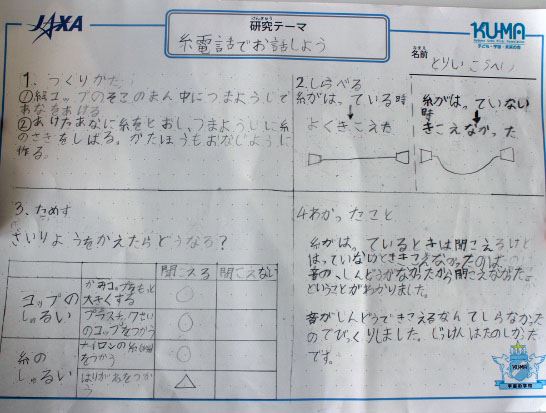 JAXA
けんきゅう
研究テーマ
糸電話でお話しよう
KU-MA
子ども・宇宙・未来の会
なまえ
名前
とりい こうへい
1. つくりかた
①紙コップのそこのまん中につまようじで
あなをあける
②あけたあなに糸をとおし、つまようじに糸
のさきをしばる。かたほうもおなじように
作る。
2.しらべる
糸がはっている時
よくきこえた
糸がはっていない
時
きこえなかった
3.ためす
ざいりょうをかえたらどうなる?
聞こえる
聞こえない
コップの
しゅるい
かみコップをもっと
大きくする
○
プラスチックせい
のコップをつかう
○
糸の
しゅるい
ナイロンの糸
をつかう
○
はりがねをつか
う
△
4.わかったこと
糸がはっているときは聞こえるけど
はっていないときはきこえなかったのは
音の、しんどうがなかったから聞こえなかった。
ということがわかりました。
音がしんどうできこえるなんてしらなかった
のでびっくりしました。じっけんはたのしかった
です。
KU-MA
宇宙の学校